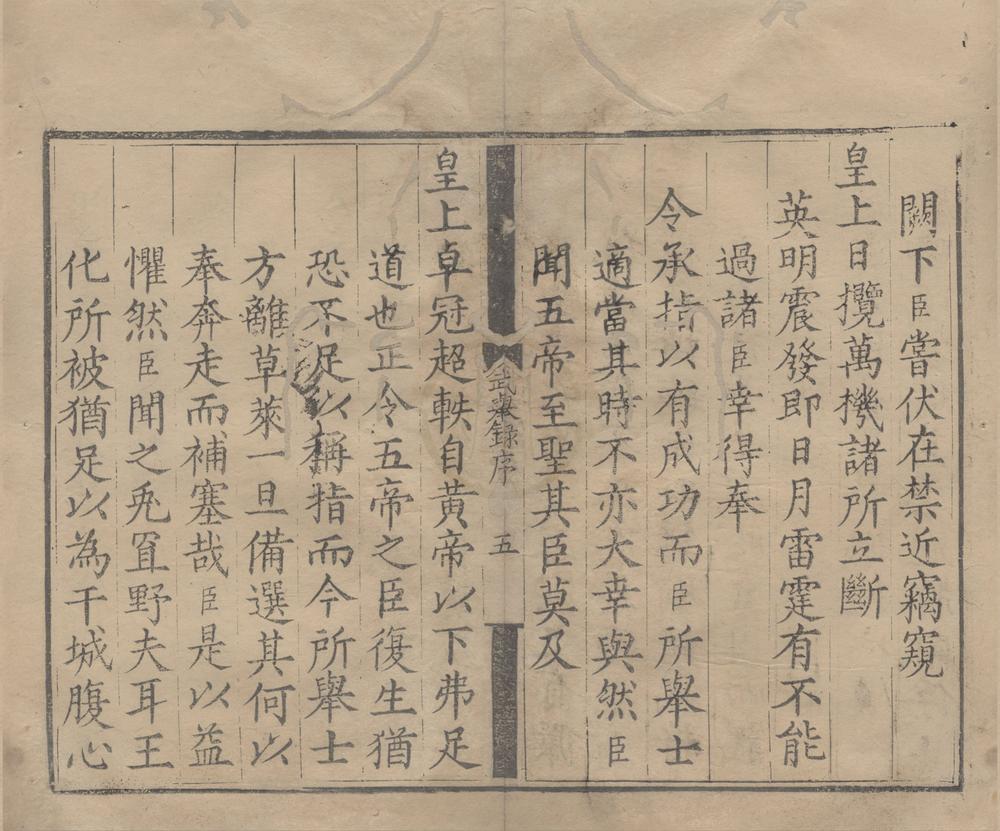 闕下臣嘗伏在禁近竊窺
皇上日攬萬機諸所立斷
英明震發即日月雷霆有不能
過諸臣幸得奉
令承指以有成功而臣所舉士
適當其時不亦大幸與然臣
聞五帝至聖其臣莫及
武舉録序
五
皇上卓冠超軼自黃帝以下弗足
道也正令五帝之臣復生猶
恐不足以稱指而今所舉士
方離草萊一旦備選其何以
奉奔走而補塞哉臣是以益
懼然臣聞之兎罝野夫耳王
化所被猶足以為干城腹心